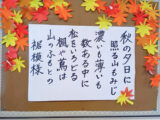 秋の夕日に
照る山もみじ
濃いも薄いも
数ある中に
松をいろどる
楓や蔦は
山のふもとの
裾模様